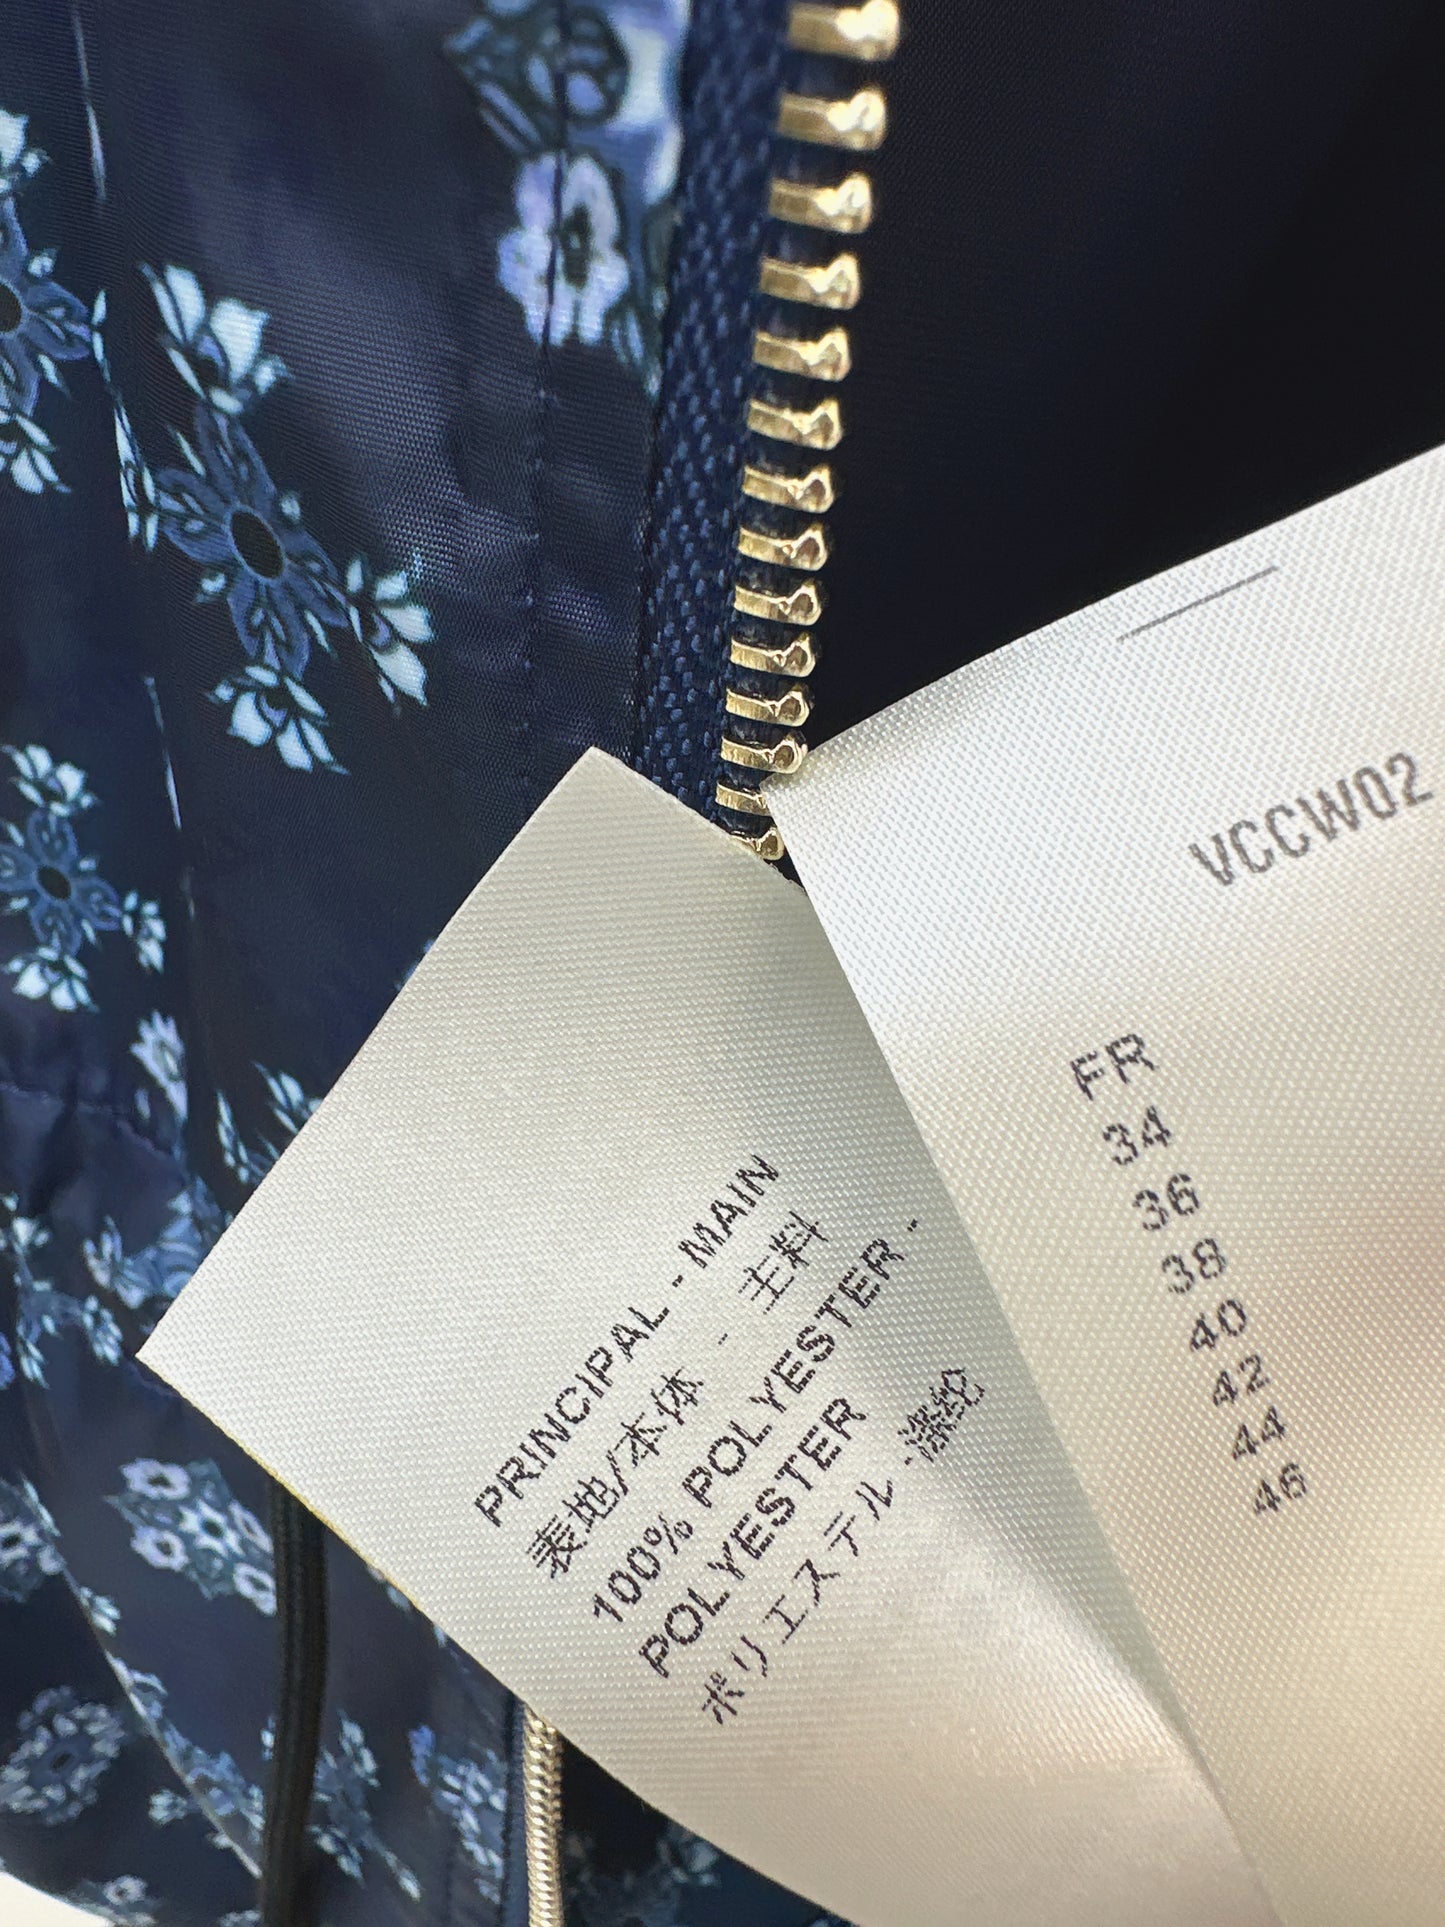 PRINCIPAL - MAIN
表地/本体 - 主料
100% POLYESTER -
POLYESTER
ポリエステル - 涤纶
VCCW02
FR
34
36
38
40
42
44
46